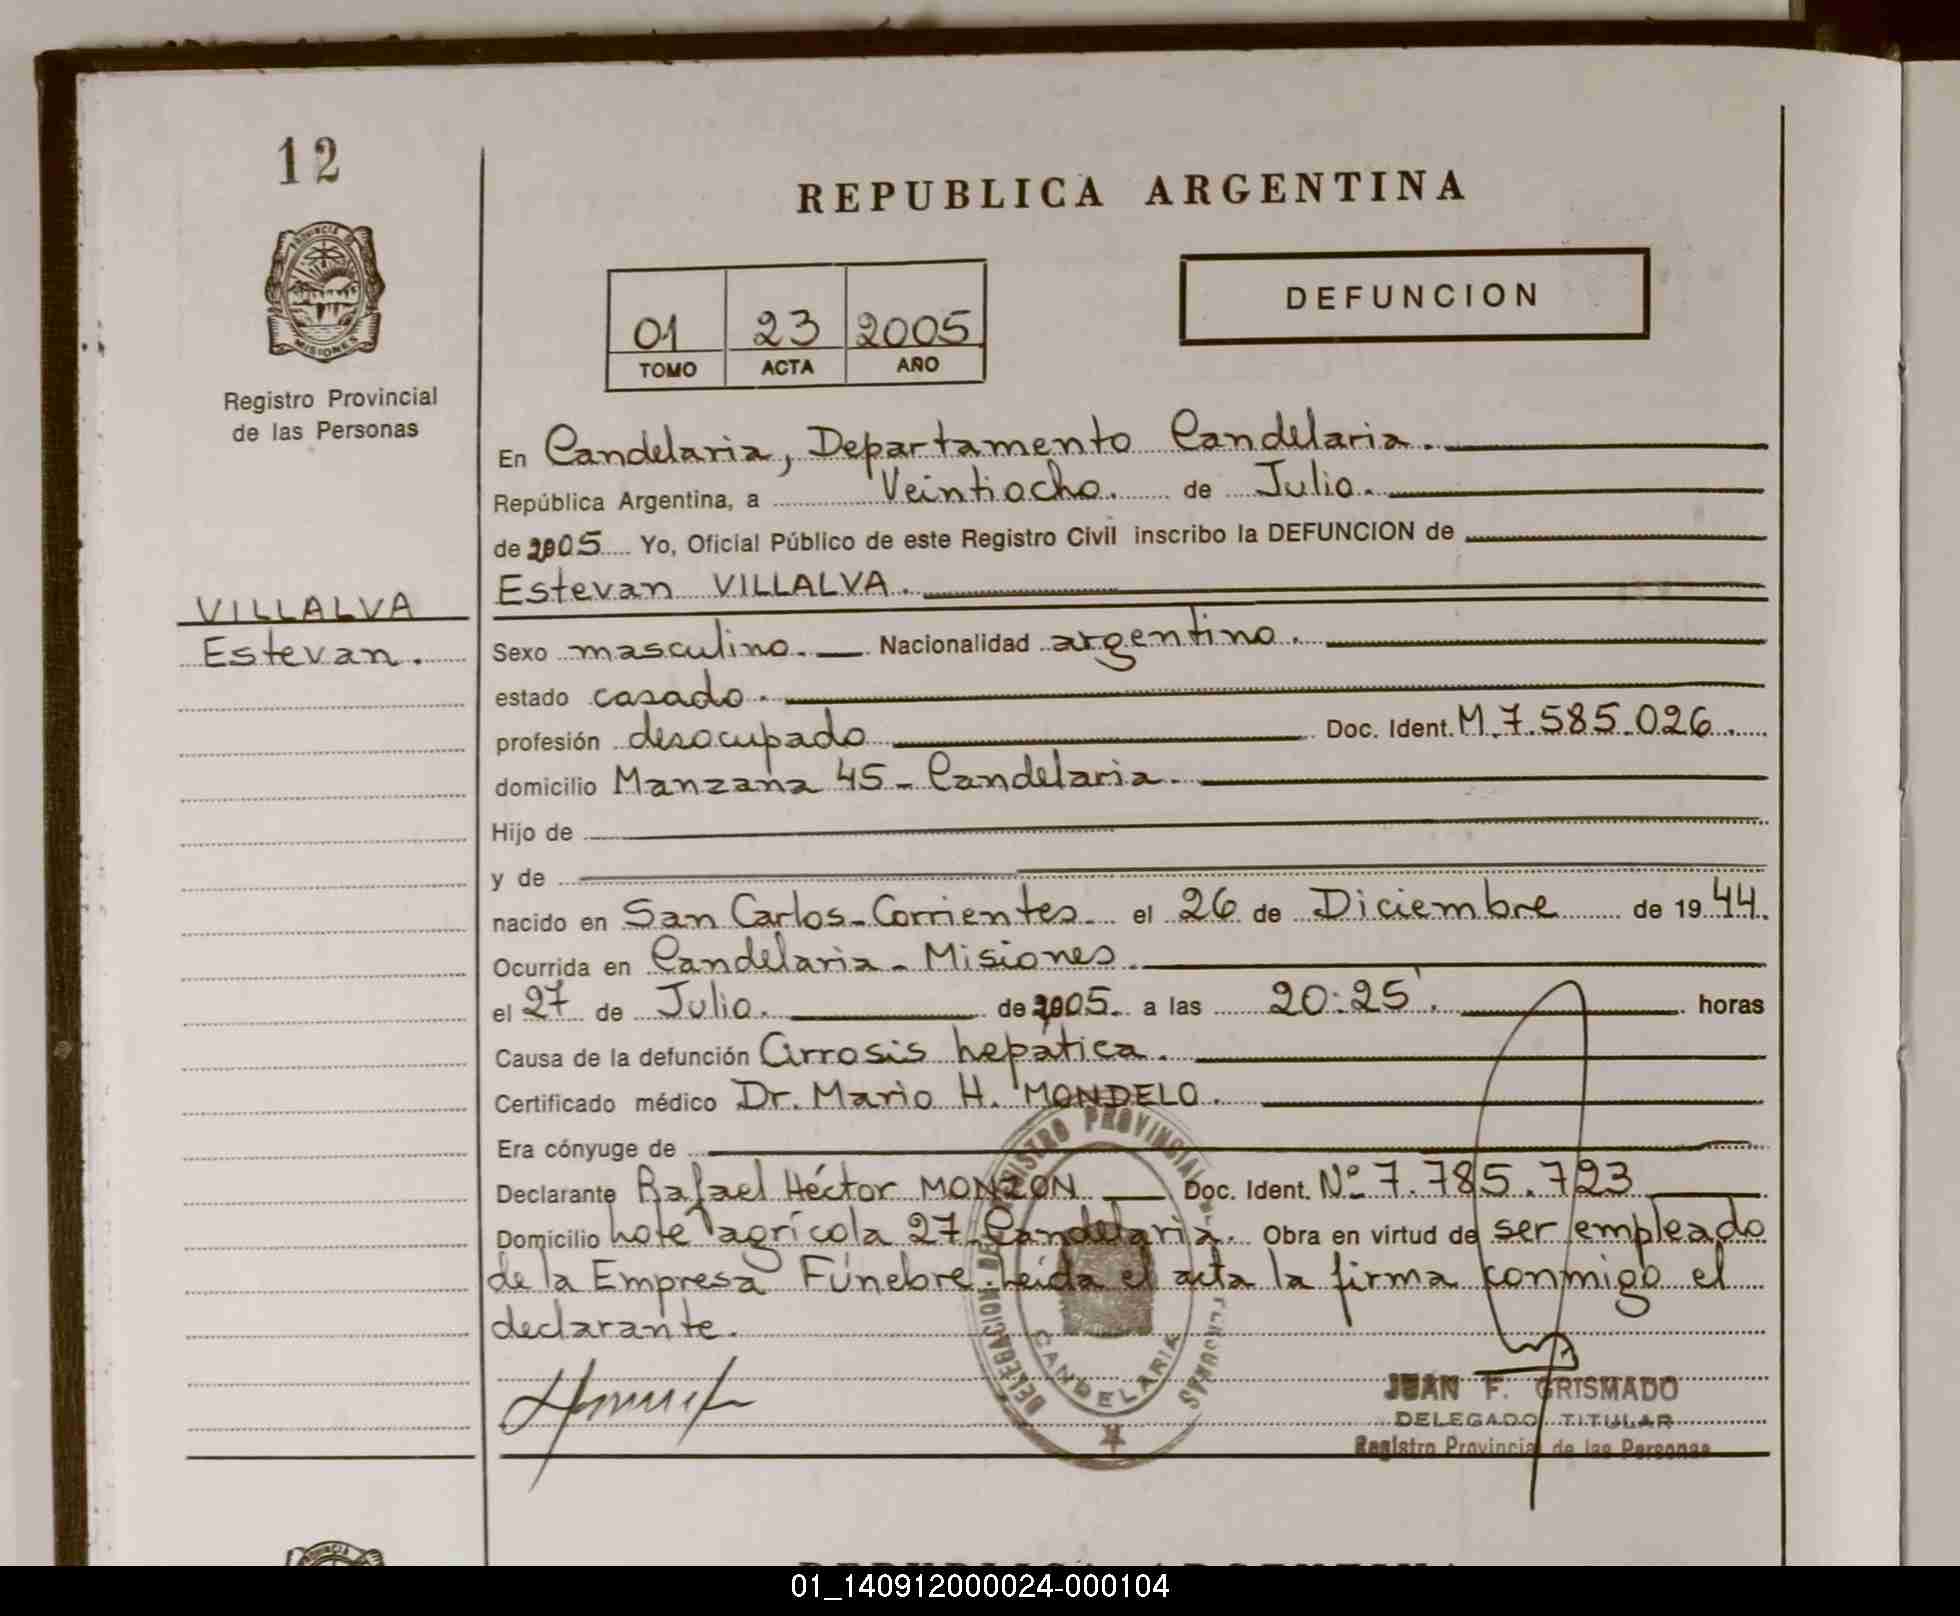 12
PROVINCIA DE
MISIONES
Registro Provincial
de las Personas
VILLALVA
Estevan.
REPUBLICA ARGENTINA
01 23 2005
TOMO ACTA AÑO
DEFUNCION
En Candelaria, Departamento Candelaria.
República Argentina, a Veintiocho. de Julio.
de 2005 Yo, Oficial Público de este Registro Civil inscribo la DEFUNCION de
Estevan VILLALVA.
Sexo masculino. Nacionalidad argentino.
estado casado.
profesión desocupado Doc. Ident. M.7.585.026.
domicilio Manzana 45 - Candelaria.
Hijo de
y de
nacido en San Carlos - Corrientes el 26 de Diciembre de 1944.
Ocurrida en Candelaria - Misiones.
el 27 de Julio. de 2005. a las 20:25'. horas
Causa de la defunción Cirrosis hepática.
Certificado médico Dr. Mario H. MONDELO.
Era cónyuge de
Declarante Rafael Héctor MONZON Doc. Ident. Nº 7.785.723
Domicilio Lote agrícola 27 - Candelaria. Obra en virtud de ser empleado
de la Empresa Fúnebre. Leída el acta la firma conmigo el
declarante.
DELEGACION DEL REGISTRO PROVINCIAL DE LAS PERSONAS
CANDELARIA
JUAN F. GRISMADO
DELEGADO TITULAR
Registro Provincial de las Personas
REPUBLICA ARGENTINA
01_140912000024-000104